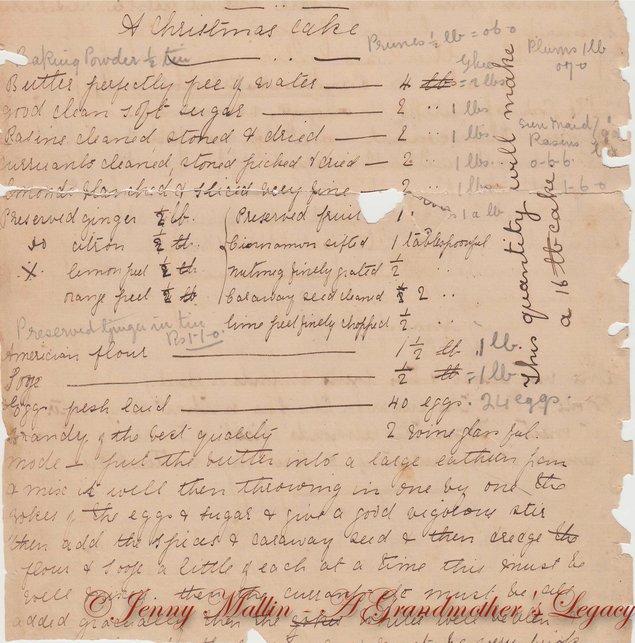 A Christmas cake
Prunes ½ lb = 0-6-0
Plums 1 lb
0-7-0
Baking Powder ½ tin
Butter perfectly free of water — 4 lb = 2 lbs
Good clean soft sugar — 2 " 1 lbs
Rasine cleaned stoned & dried — 2 " 1 lbs
sun maid
Rasins
0-6-6
curruants cleaned, stoned picked & dried — 2 " 1 lbs
1-6-0
Almonds blanched & sliced very fine — 2 " 1 lbs
Preserved ginger ½ lb. Preserved fruit 1 " 1 lb
do citron ½ lb Cinnamon sifted 1 tablespoonful
X lemon peel ½ lb nutmeg finely grated ½ "
orange peel ½ lb Caraway seed cleaned 2 "
lime peel finely chopped ½ "
Preserved Ginger in tin
Rs 1-1-0
American flour — 1 ½ lb 1 lb.
Sooje — ½ lb = 1 lb
Eggs fresh laid — 40 eggs. 24 eggs.
Brandy of the best quality 2 wine glass ful.
This quantity will make
a 16 lb cake
mode — put the butter into a large earthen pan
& mix it well then throwing in one by one the
yokes of the eggs & sugar & give a good vigorous stir
then add the spices & caraway seed & then dredge the
flour & sooje a little of each at a time this must be
well then the curruants must be all
added gradually then the whites well beaten
© Jenny Mallin - A Grandmother's Legacy